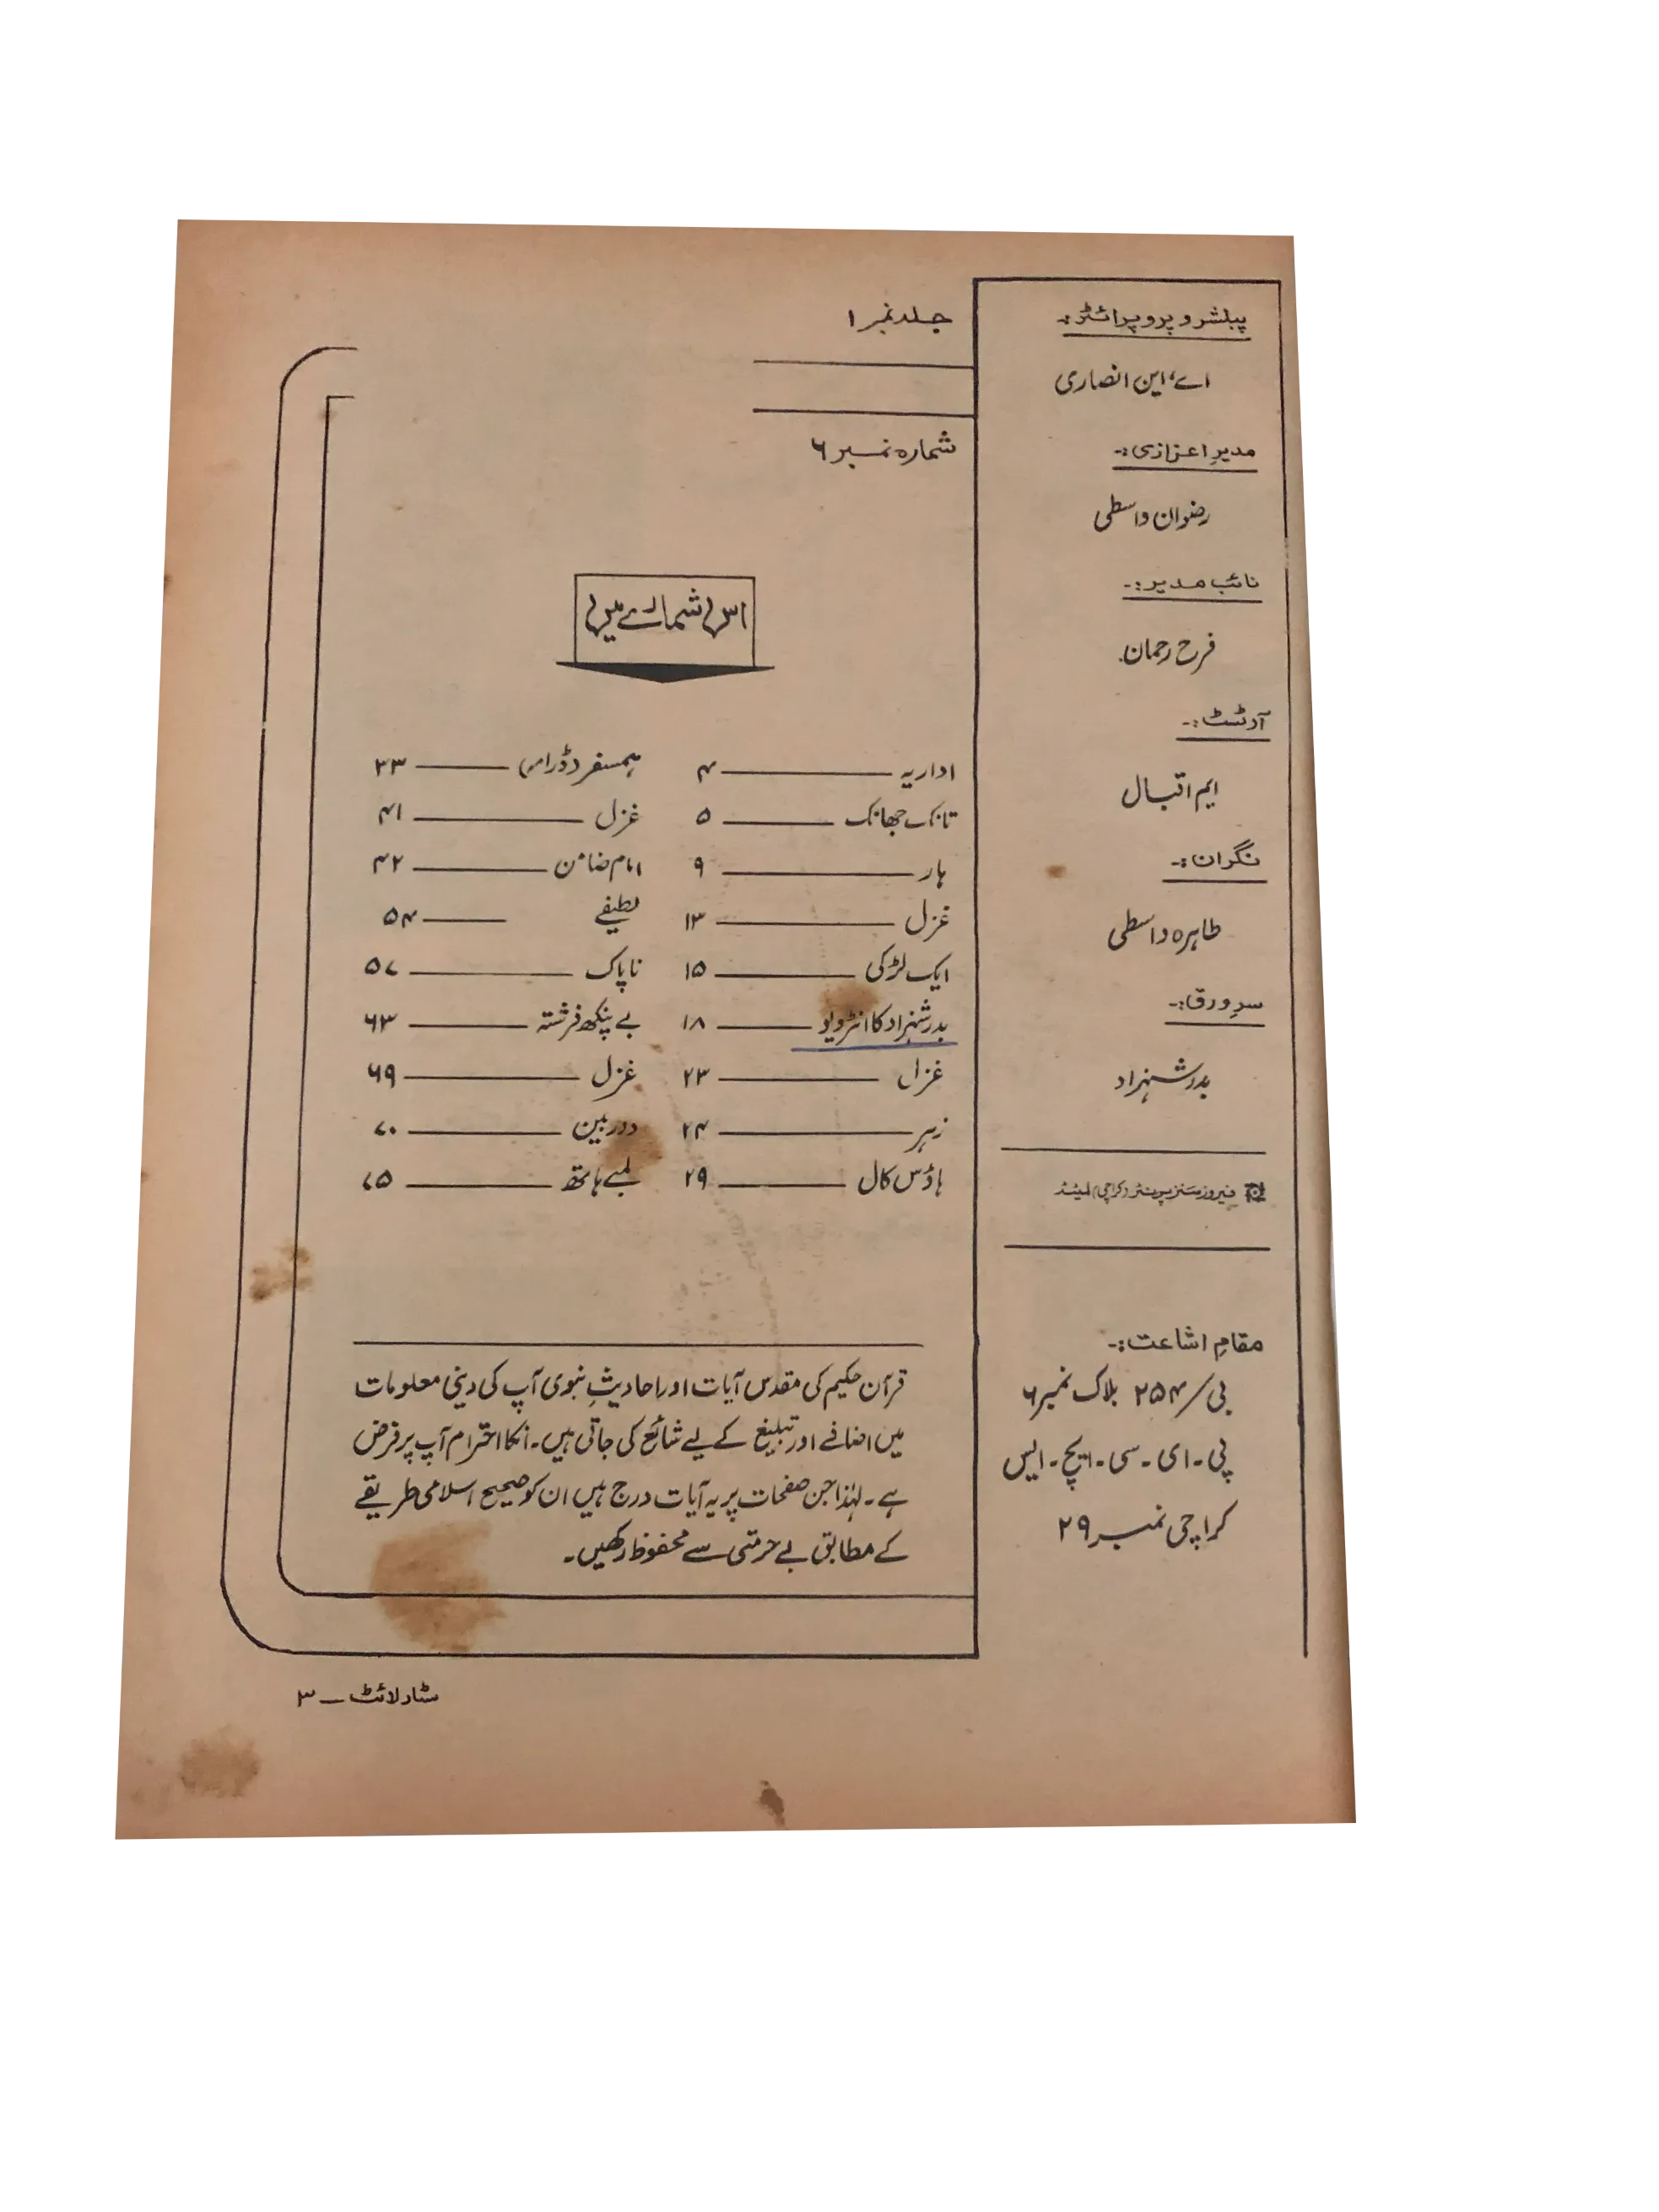 پبلشر و پروپرائٹر:۔
اے، این انصاری
مدیرِ اعزازی:۔
رضوان واسطی
نائب مدیر:۔
فرح رحمان
آرٹسٹ:۔
ایم اقبال
نگران:۔
طاہرہ واسطی
سرِورق:۔
بدر شہزاد
فیروز سنز پرنٹر (کراچی) لمیٹڈ
مقامِ اشاعت:۔
بی/۲۵۴ بلاک نمبر ۶
پی۔ ای۔ سی۔ ایچ۔ ایس
کراچی نمبر ۲۹
جلد نمبر ۱
شمارہ نمبر ۶
اس شمارے میں
اداریہ ۴
تانک جھانک ۵
ہار ۹
غزل ۱۳
ایک لڑکی ۱۵
بدر شہزاد کا انٹرویو ۱۸
غزل ۲۳
زہر ۲۴
ہاؤس کال ۲۹
ہمسفر (ڈرامہ) ۳۳
غزل ۴۱
امام ضامن ۴۲
لطیفے ۵۴
ناپاک ۵۷
بے پنکھ فرشتہ ۶۳
غزل ۶۹
دوربین ۷۰
لمبے ہاتھ ۷۵
قرآن حکیم کی مقدس آیات اور احادیثِ نبوی آپ کی دینی معلومات
میں اضافے اور تبلیغ کے لیے شائع کی جاتی ہیں۔ انکا احترام آپ پر فرض
ہے۔ لہٰذا جن صفحات پر یہ آیات درج ہیں ان کو صحیح اسلامی طریقے
کے مطابق بے حرمتی سے محفوظ رکھیں۔
سٹار لائٹ ــ ۳